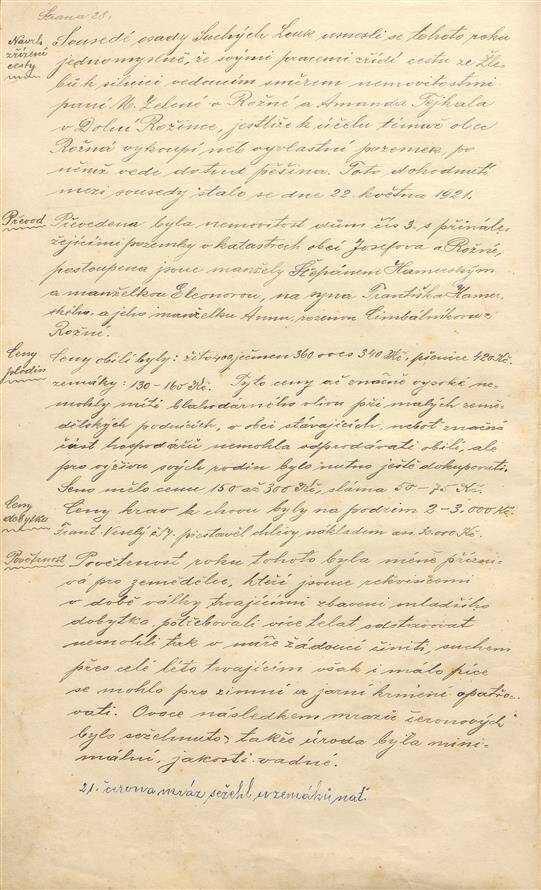 Strana 28.
Návrh
zřízení
cesty
Sousedé osady Suchých Louk usnesli se tohoto roku
jednomyslně, že svými pracemi zřídí cestu ze Žle-
bů k silnici vedoucím směrem nemovitostmi
paní M. Zelené v Rožné a Amanda Fejkala
v Dolní Rožince, jestliže k účelu tomuž obec
Rožná vykoupí neb vyvlastní pozemek, po
němž vede dotud pěšina. Toto dohodnutí
mezi sousedy stalo se dne 22. května 1921.
Převod
Převedena byla nemovitost dům čís 3. s přinále-
žejícími pozemky v katastrech obcí Josefova a Rožné,
postoupena jsouc manžely Štěpánem Hamerským
a manželkou Eleonorou, na syna Františka Hamer-
ského, a jeho manželku Annu, rozenou Cimbálníkovou z
Rožné.
Ceny
plodin
Ceny obilí byly: žito 400, ječmen 360 oves 340 Kč, pšenice 420 Kč.
zemáky: 130-160 Kč. Tyto ceny ač značně vysoké ne-
mohly míti blahodárného vlivu při malých země-
dělských podnicích, v obci stávajících, neboť značná
část hospodářů nemohla odprodávati obilí, ale
pro výživu svých rodin bylo nutno ještě dokupovati.
Seno mělo cenu 150 až 300 Kč, sláma 50-75 Kč.
Ceny
dobytka
Ceny krav k chovu byly na podzim 2-3.000 Kč.
Frant. Veselý č. 17. přestavěl chlévy nákladem asi 30.000 Kč.
Povětrnost
Povětrnost roku tohoto byla méně přízni-
vá pro zemědělce, kteří jsouce rekvisicemi
v době války trvajícími zbaveni mladšího
dobytka potřebovali více telat odstavovat
nemohli tak v míře žádoucí činiti, suchem
přes celé léto trvajícím však i málo píce
se mohlo pro zimní a jarní krmení opatřo-
vati. Ovoce následkem mrazů červnových
bylo sežehnuto, takže úroda byla mini-
mální, jakosti vadné.
21. června mráz sežehl u zemáků nať.